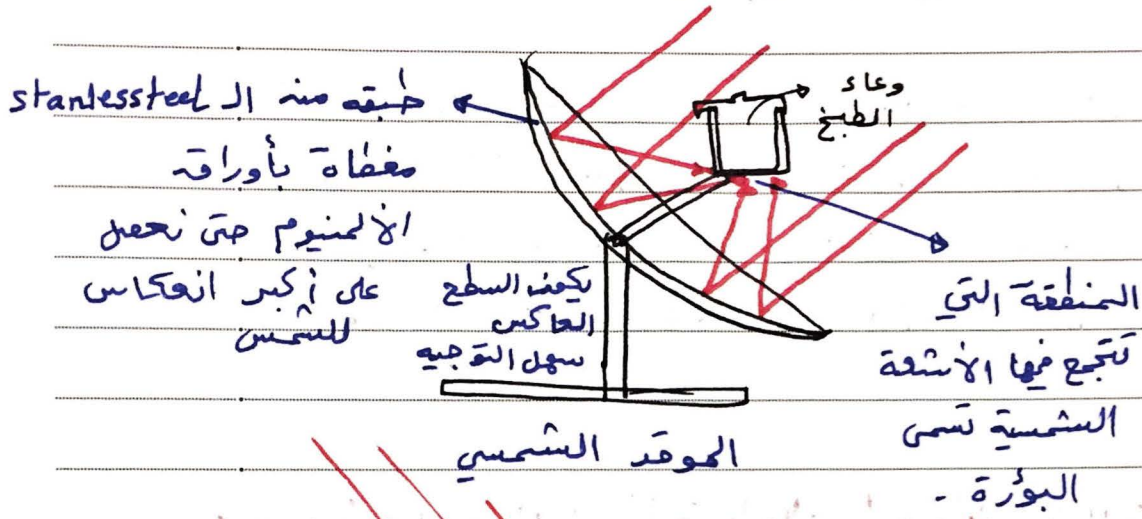 وعاء
الطبخ
طبقه من الـ stanlessteel
مغطاة بأوراق
الألمنيوم حتى نحصل
على أكبر انعكاس
للشمس
يكون السطح
العاكس
سهل التوجيه
المنطقة التي
تتجمع فيها الأشعة
الشمسية تسمى
البؤرة .
الموقد الشمسي